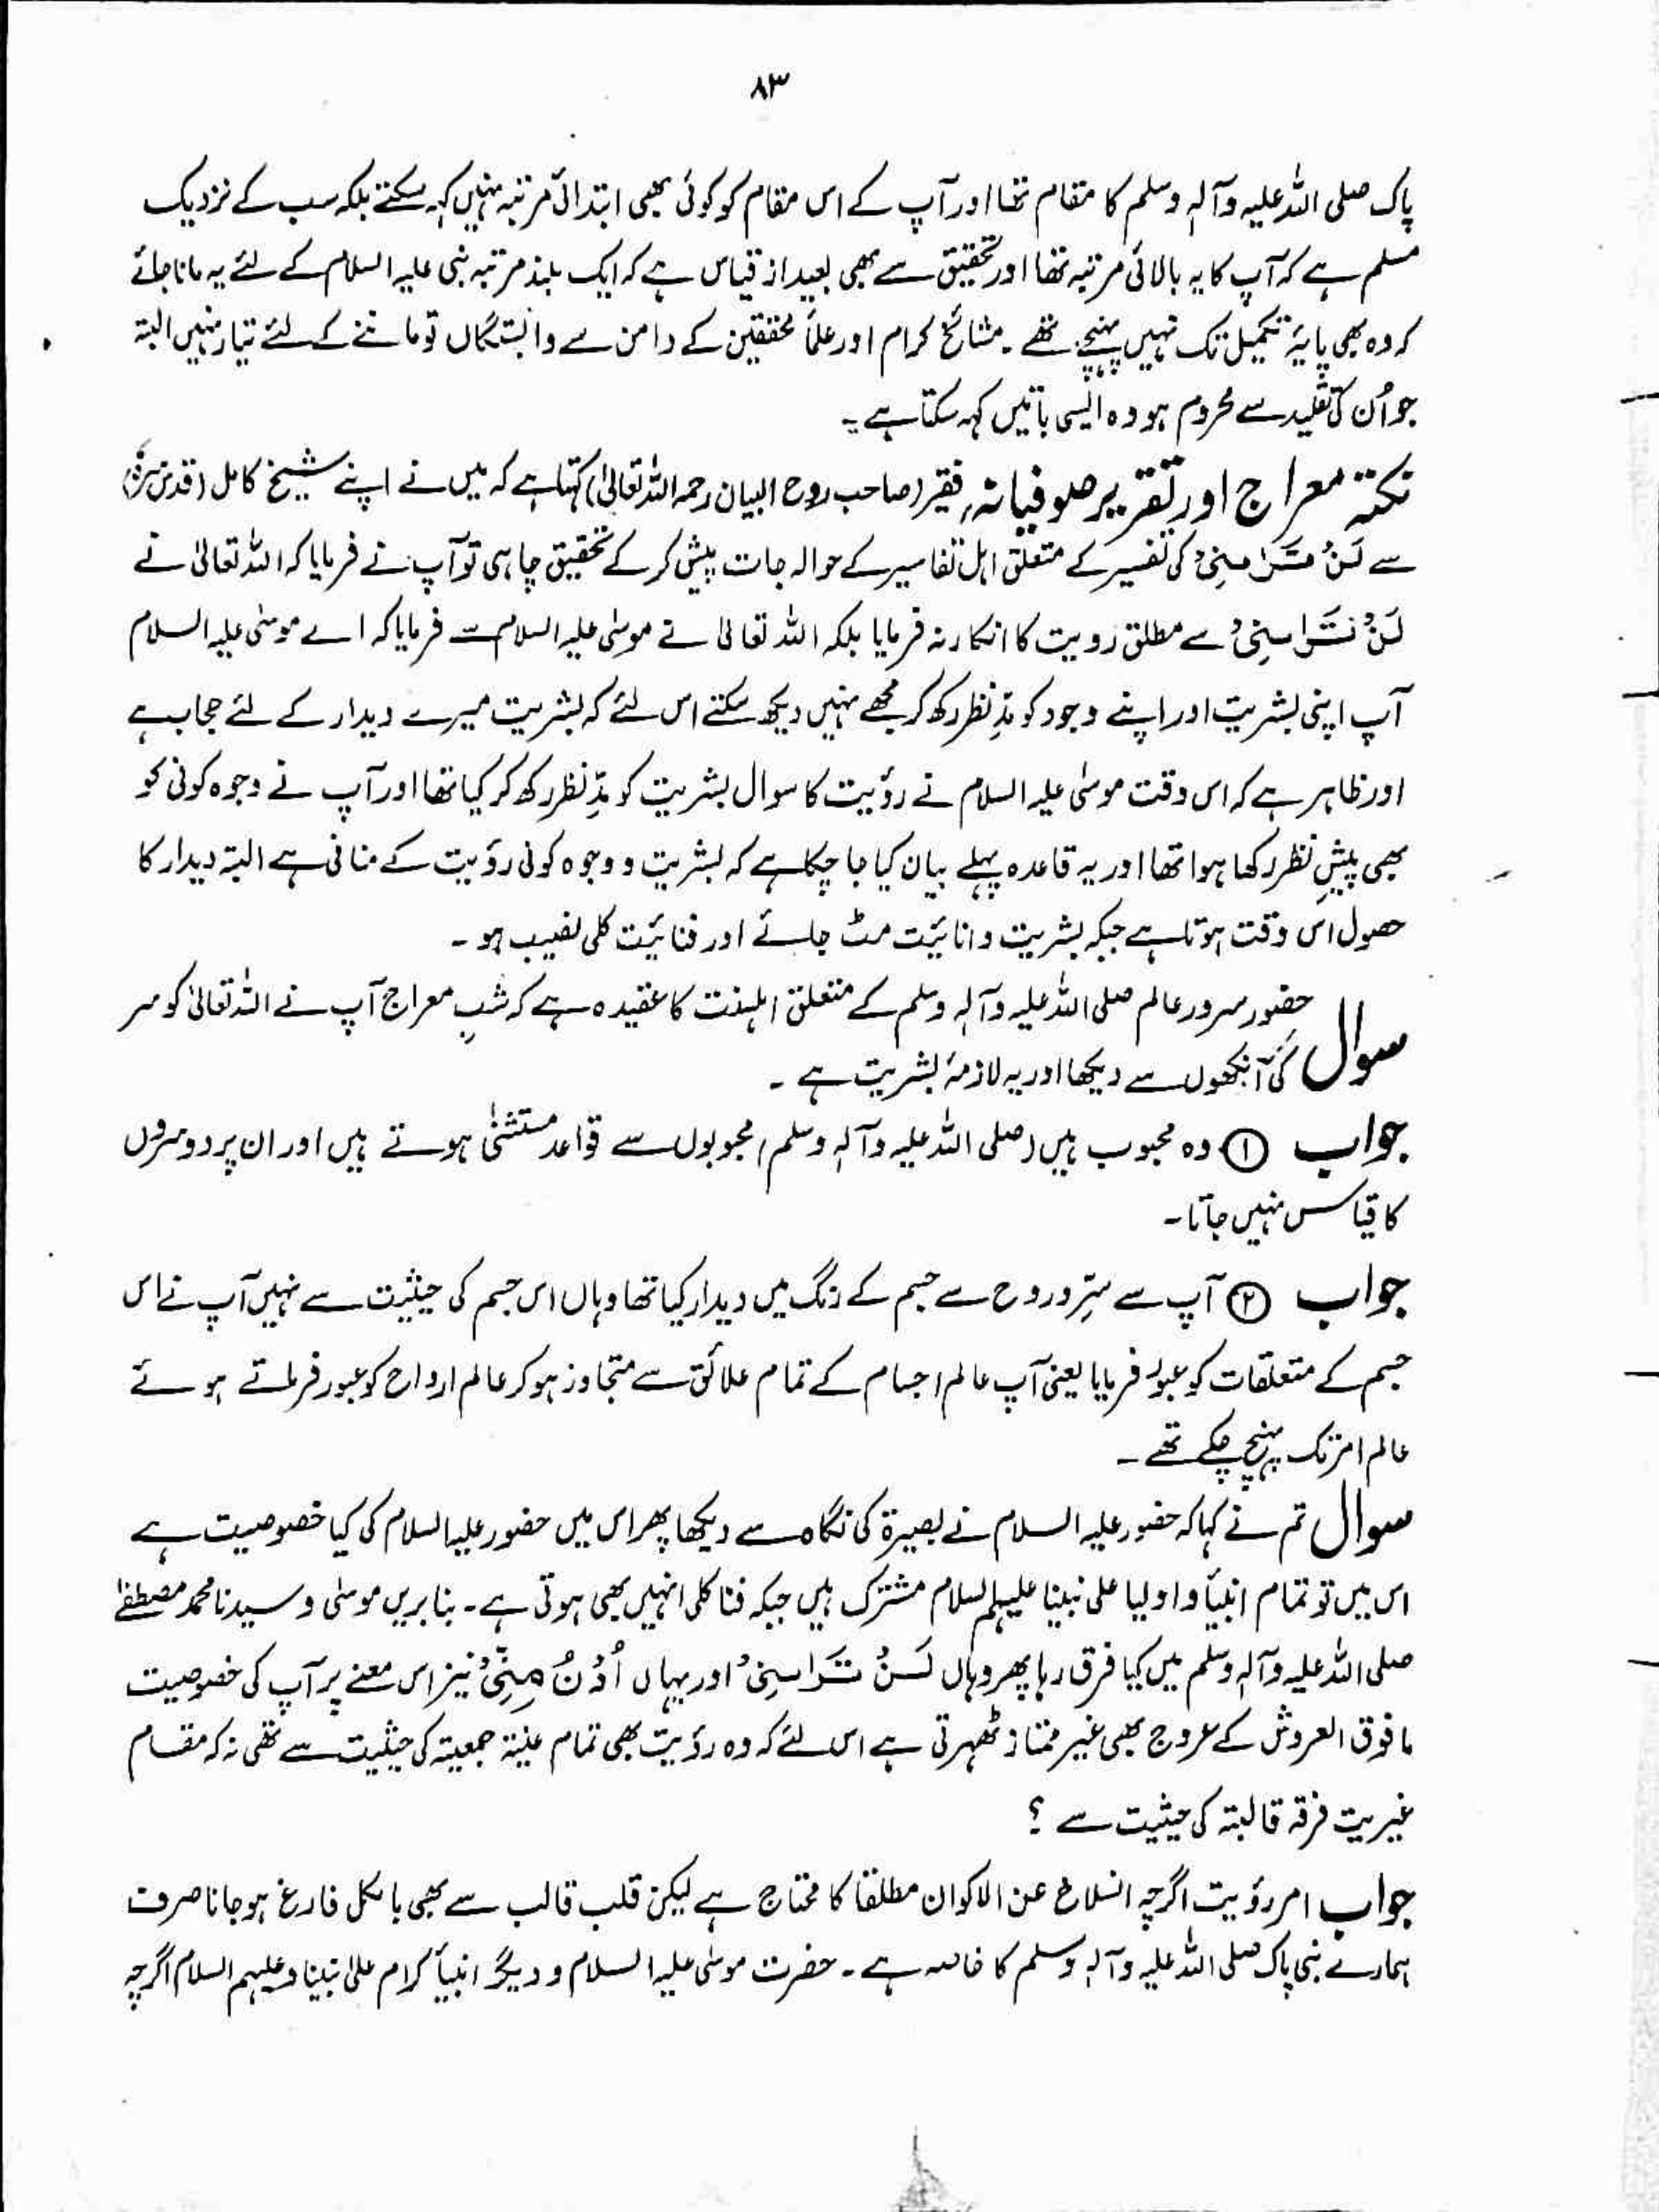 ۸۳
پاک صلی اللہ علیہ وآلہٖ وسلم کا مقام تھا اور آپ کے اس مقام کو کوئی بھی ابتدائی مرتبہ نہیں کہہ سکتے بلکہ سب کے نزدیک
مسلم ہے کہ آپ کا یہ بالائی مرتبہ تھا اور تحقیق سے بھی بعید از قیاس ہے کہ ایک بلند مرتبہ نبی علیہ السلام کے لئے یہ مانا جائے
کہ وہ بھی پایۂ تکمیل تک نہیں پہنچے تھے ۔ مشائخ کرام اور علماً محققین کے دامن سے وابستگاں تو ماننے کے لئے تیار نہیں البتہ
جو اُن کی تقلید سے محروم ہو وہ ایسی باتیں کہہ سکتا ہے ۔
نکتہ معراج اور تقریر صوفیانہ فقیر (صاحب روح البیان رحمہ اللہ تعالیٰ) کہتا ہے کہ میں نے اپنے شیخ کامل (قدس سرّہٗ)
سے لَنْ تَرَانِیْ کی تفسیر کے متعلق اہل تفاسیر کے حوالہ جات پیش کر کے تحقیق چاہی تو آپ نے فرمایا کہ اللہ تعالیٰ نے
لَنْ تَرَانِیْ سے مطلق رویت کا انکار نہ فرمایا بلکہ اللہ تعالیٰ نے موسٰی علیہ السلام سے فرمایا کہ اے موسٰی علیہ السلام
آپ اپنی بشریت اور اپنے وجود کو مدِّنظر رکھ کر مجھے نہیں دیکھ سکتے اس لئے کہ بشریت میرے دیدار کے لئے حجاب ہے
اور ظاہر ہے کہ اس وقت موسٰی علیہ السلام نے رؤیت کا سوال بشریت کو مدِّنظر رکھ کر کیا تھا اور آپ نے وجوہ کونی کو
بھی پیشِ نظر رکھا ہوا تھا اور یہ قاعدہ پہلے بیان کیا جا چکا ہے کہ بشریت و وجوہ کونی رؤیت کے منافی ہے البتہ دیدار کا
حصول اس وقت ہوتا ہے جبکہ بشریت و انانیّت مٹ جائے اور فنائیّت کلی نصیب ہو ۔
سوال حضور سرور عالم صلی اللہ علیہ وآلہٖ وسلم کے متعلق اہلسنت کا عقیدہ ہے کہ شبِ معراج آپ نے اللہ تعالیٰ کو سر
کی آنکھوں سے دیکھا اور یہ لازمۂ بشریت ہے ۔
جواب ① وہ محبوب ہیں (صلی اللہ علیہ وآلہٖ وسلم) محبوبوں سے قواعد مستثنیٰ ہوتے ہیں اور ان پر دوسروں
کا قیاس نہیں جاتا ۔
جواب ② آپ سے سرّ و روح سے جسم کے رنگ میں دیدار کیا تھا وہاں اس جسم کی حیثیت سے نہیں آپ نے اس
جسم کے متعلقات کو عبور فرمایا یعنی آپ عالم اجسام کے تمام علائق سے متجاوز ہو کر عالم ارواح کو عبور فرماتے ہوئے
عالم امر تک پہنچ چکے تھے ۔
سوال تم نے کہا کہ حضور علیہ السلام نے بصیرۃ کی نگاہ سے دیکھا پھر اس میں حضور علیہ السلام کی کیا خصوصیت ہے
اس میں تو تمام انبیأ و اولیا علی نبینا علیہم السلام مشترک ہیں جبکہ فنا کلی انہیں بھی ہوتی ہے ۔ بنا بریں موسٰی و سیدنا محمد مصطفےٰ
صلی اللہ علیہ وآلہٖ وسلم میں کیا فرق رہا پھر وہاں لَنْ تَرَانِیْ اور یہاں اُدْنُ مِنِّیْ نیز اس معنے پر آپ کی خصوصیت
ما فوق العروش کے عروج بھی غیر ممتاز ٹھہرتی ہے اس لئے کہ وہ رؤیت بھی تمام جمعیتہ کی حیثیت سے تھی نہ کہ مقام
غیریت فرقہ قالبتہ کی حیثیت سے ؟
جواب امر رؤیت اگرچہ انسلاخ عن الاکوان مطلقا کا محتاج ہے لیکن قلب قالب سے بھی بالکل فارغ ہو جانا صرف
ہمارے نبی پاک صلی اللہ علیہ وآلہٖ وسلم کا خاصہ ہے ۔ حضرت موسٰی علیہ السلام و دیگر انبیأ کرام علیٰ نبینا و علیہم السلام اگرچہ